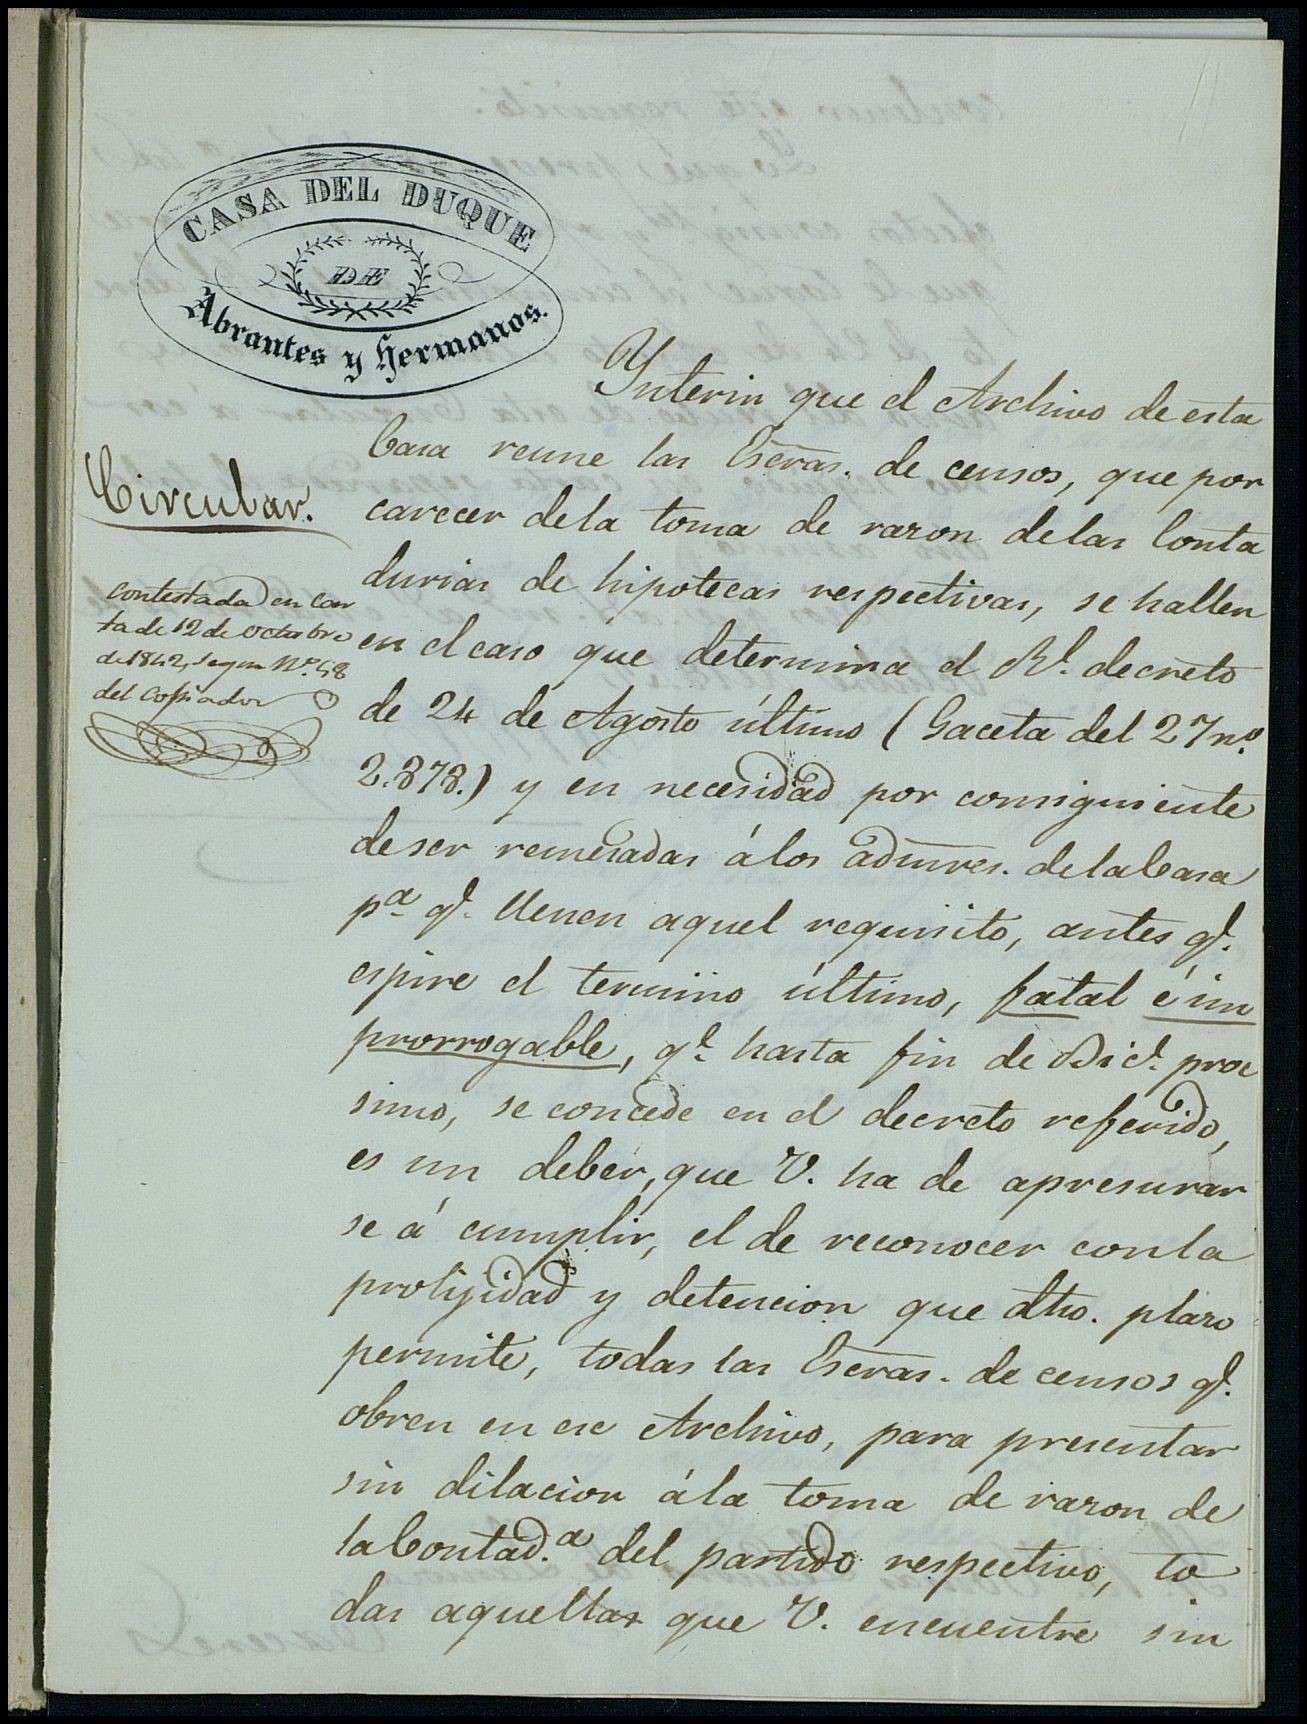 CASA DEL DUQUE
DE
Abrantes y Hermanos.
Circular.
contestada en car
ta de 12 de octubre
de 1842, segun Nº. 48
del copiador
Ynterin que el Archivo de esta
Casa reune las Escras. de censos, que por
carecer de la toma de razon de las Conta
durias de hipotecas respectivas, se hallen
en el caso que determina el Rl. decreto
de 24 de Agosto último (Gaceta del 27 nº.
2.878.) y en necesidad por consiguiente
de ser remesadas á los admres. de la Casa
pª. qe. llenen aquel requisito, antes qe.
espire el termino último, fatal é im
prorrogable, qe. hasta fin de Dice. proc
simo, se concede en el decreto referido,
es un deber, que V. ha de apresurar
se á cumplir, el de reconocer con la
prolijidad y detencion que dho. plazo
permite, todas las Escras. de censos qe.
obren en ese Archivo, para presentar
sin dilacion á la toma de razon de
la Contad.ª del partido respectivo, to
das aquellas que V. encuentre sin